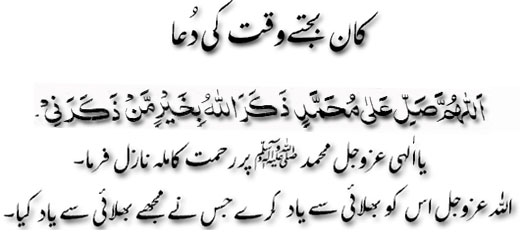 کان بجتے وقت کی دُعا
اَللّٰهُمَّ صَلِّ عَلٰی مُحَمَّدٍ ذَكَرَ اللّٰهُ بِخَيْرٍ مَّنْ ذَكَرَنِیْ.
یا الٰہی عزوجل محمد ﷺ پر رحمت کاملہ نازل فرما۔
اللہ عزوجل اس کو بھلائی سے یاد کرے جس نے مجھے بھلائی سے یاد کیا۔